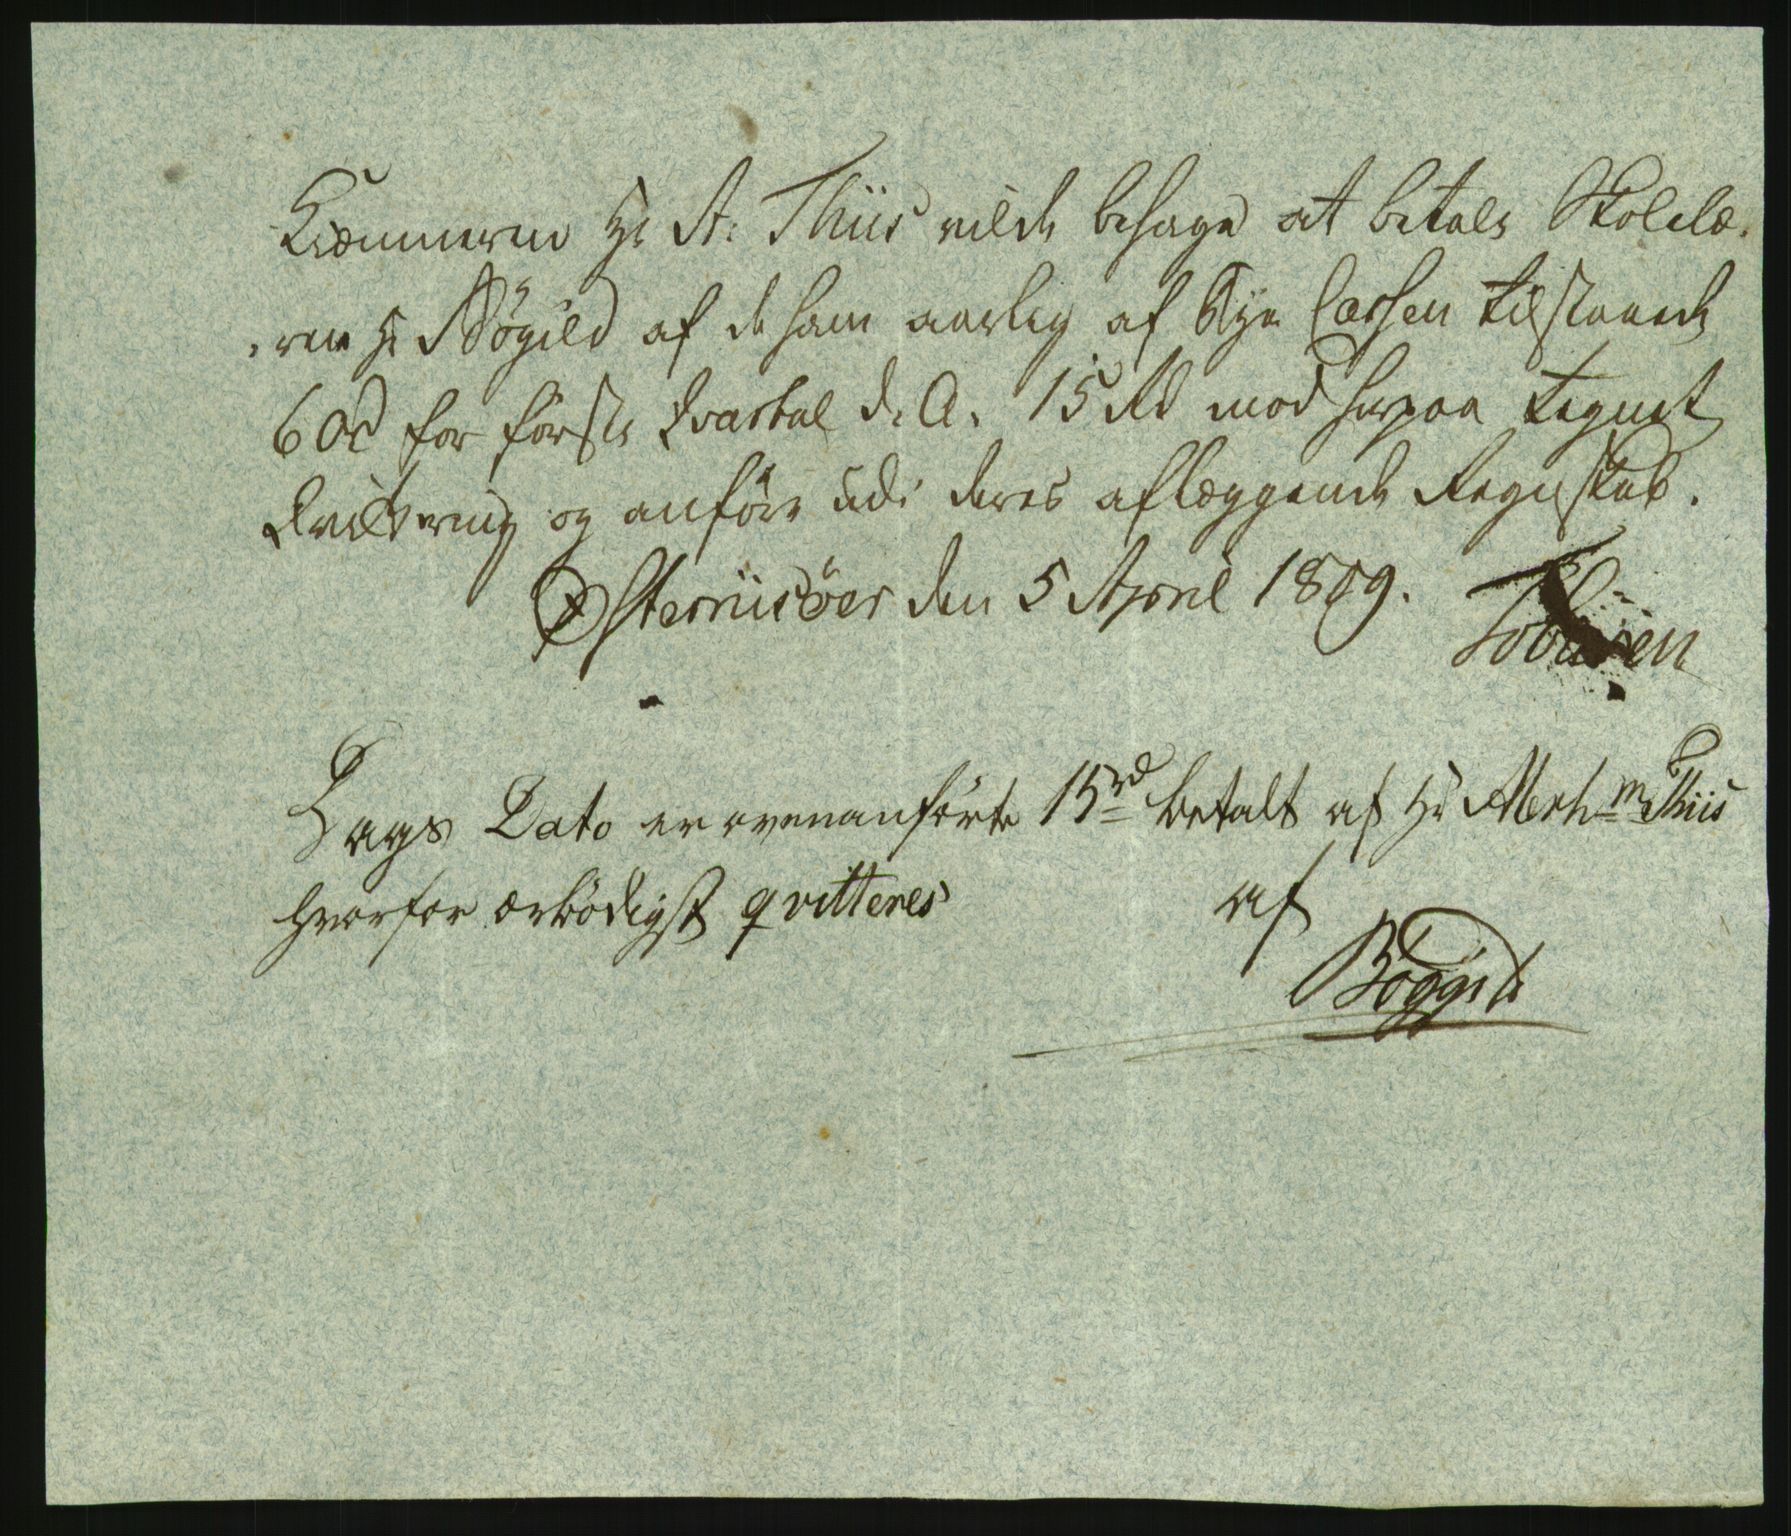 Kæmneren Hr A: Thiis vilde behage at betale Skolelæ-
-ren Hr Bögild af de ham aarlig af Bye Cassen tilstaaede
60rd for förste Qvartal d. A. 15 Rd mod herpaa tegnet
Qvittering og anföre udi deres aflæggende Regnskab.
Østerriisöer den 5 April 1809.
Dags Dato er ovenanförte 15rd betalt af Hr A Thiis
hvorfor ærbödigst qvitteres af
Böggild